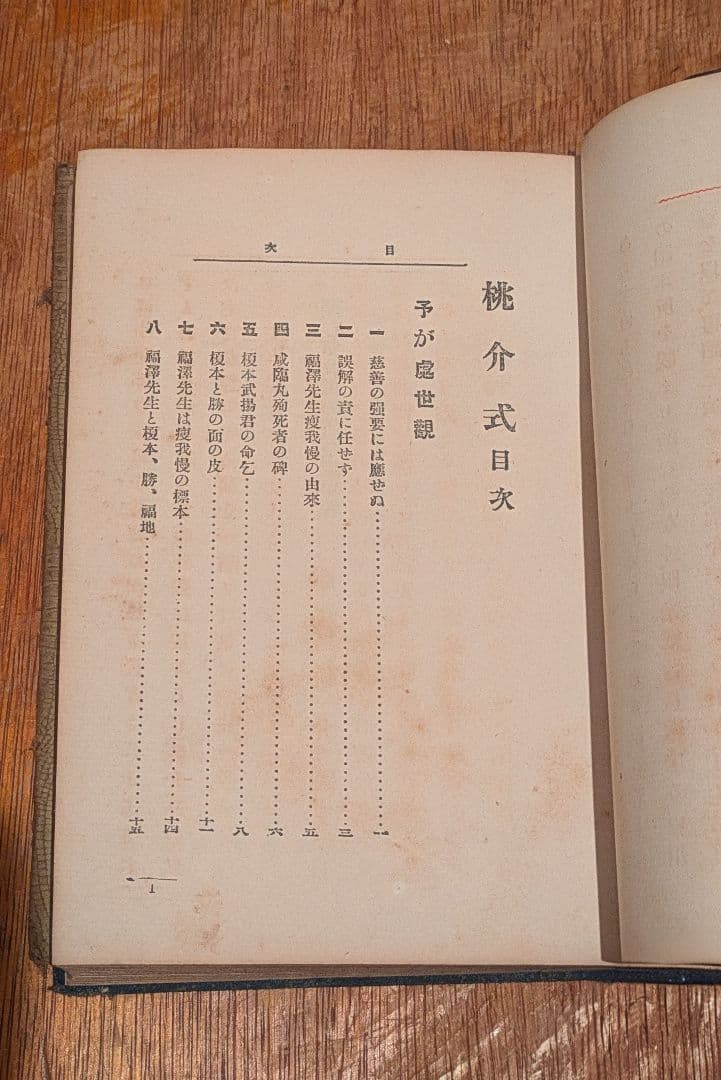 目次
桃介式目次
予が處世觀
一 慈善の强要には應せぬ……一
二 誤解の責に任せず……三
三 福澤先生瘦我慢の由來……五
四 咸臨丸殉死者の碑……六
五 榎本武揚君の命乞……八
六 榎本と勝の面の皮……十一
七 福澤先生は瘦我慢の標本……十四
八 福澤先生と榎本、勝、福地……十五
1